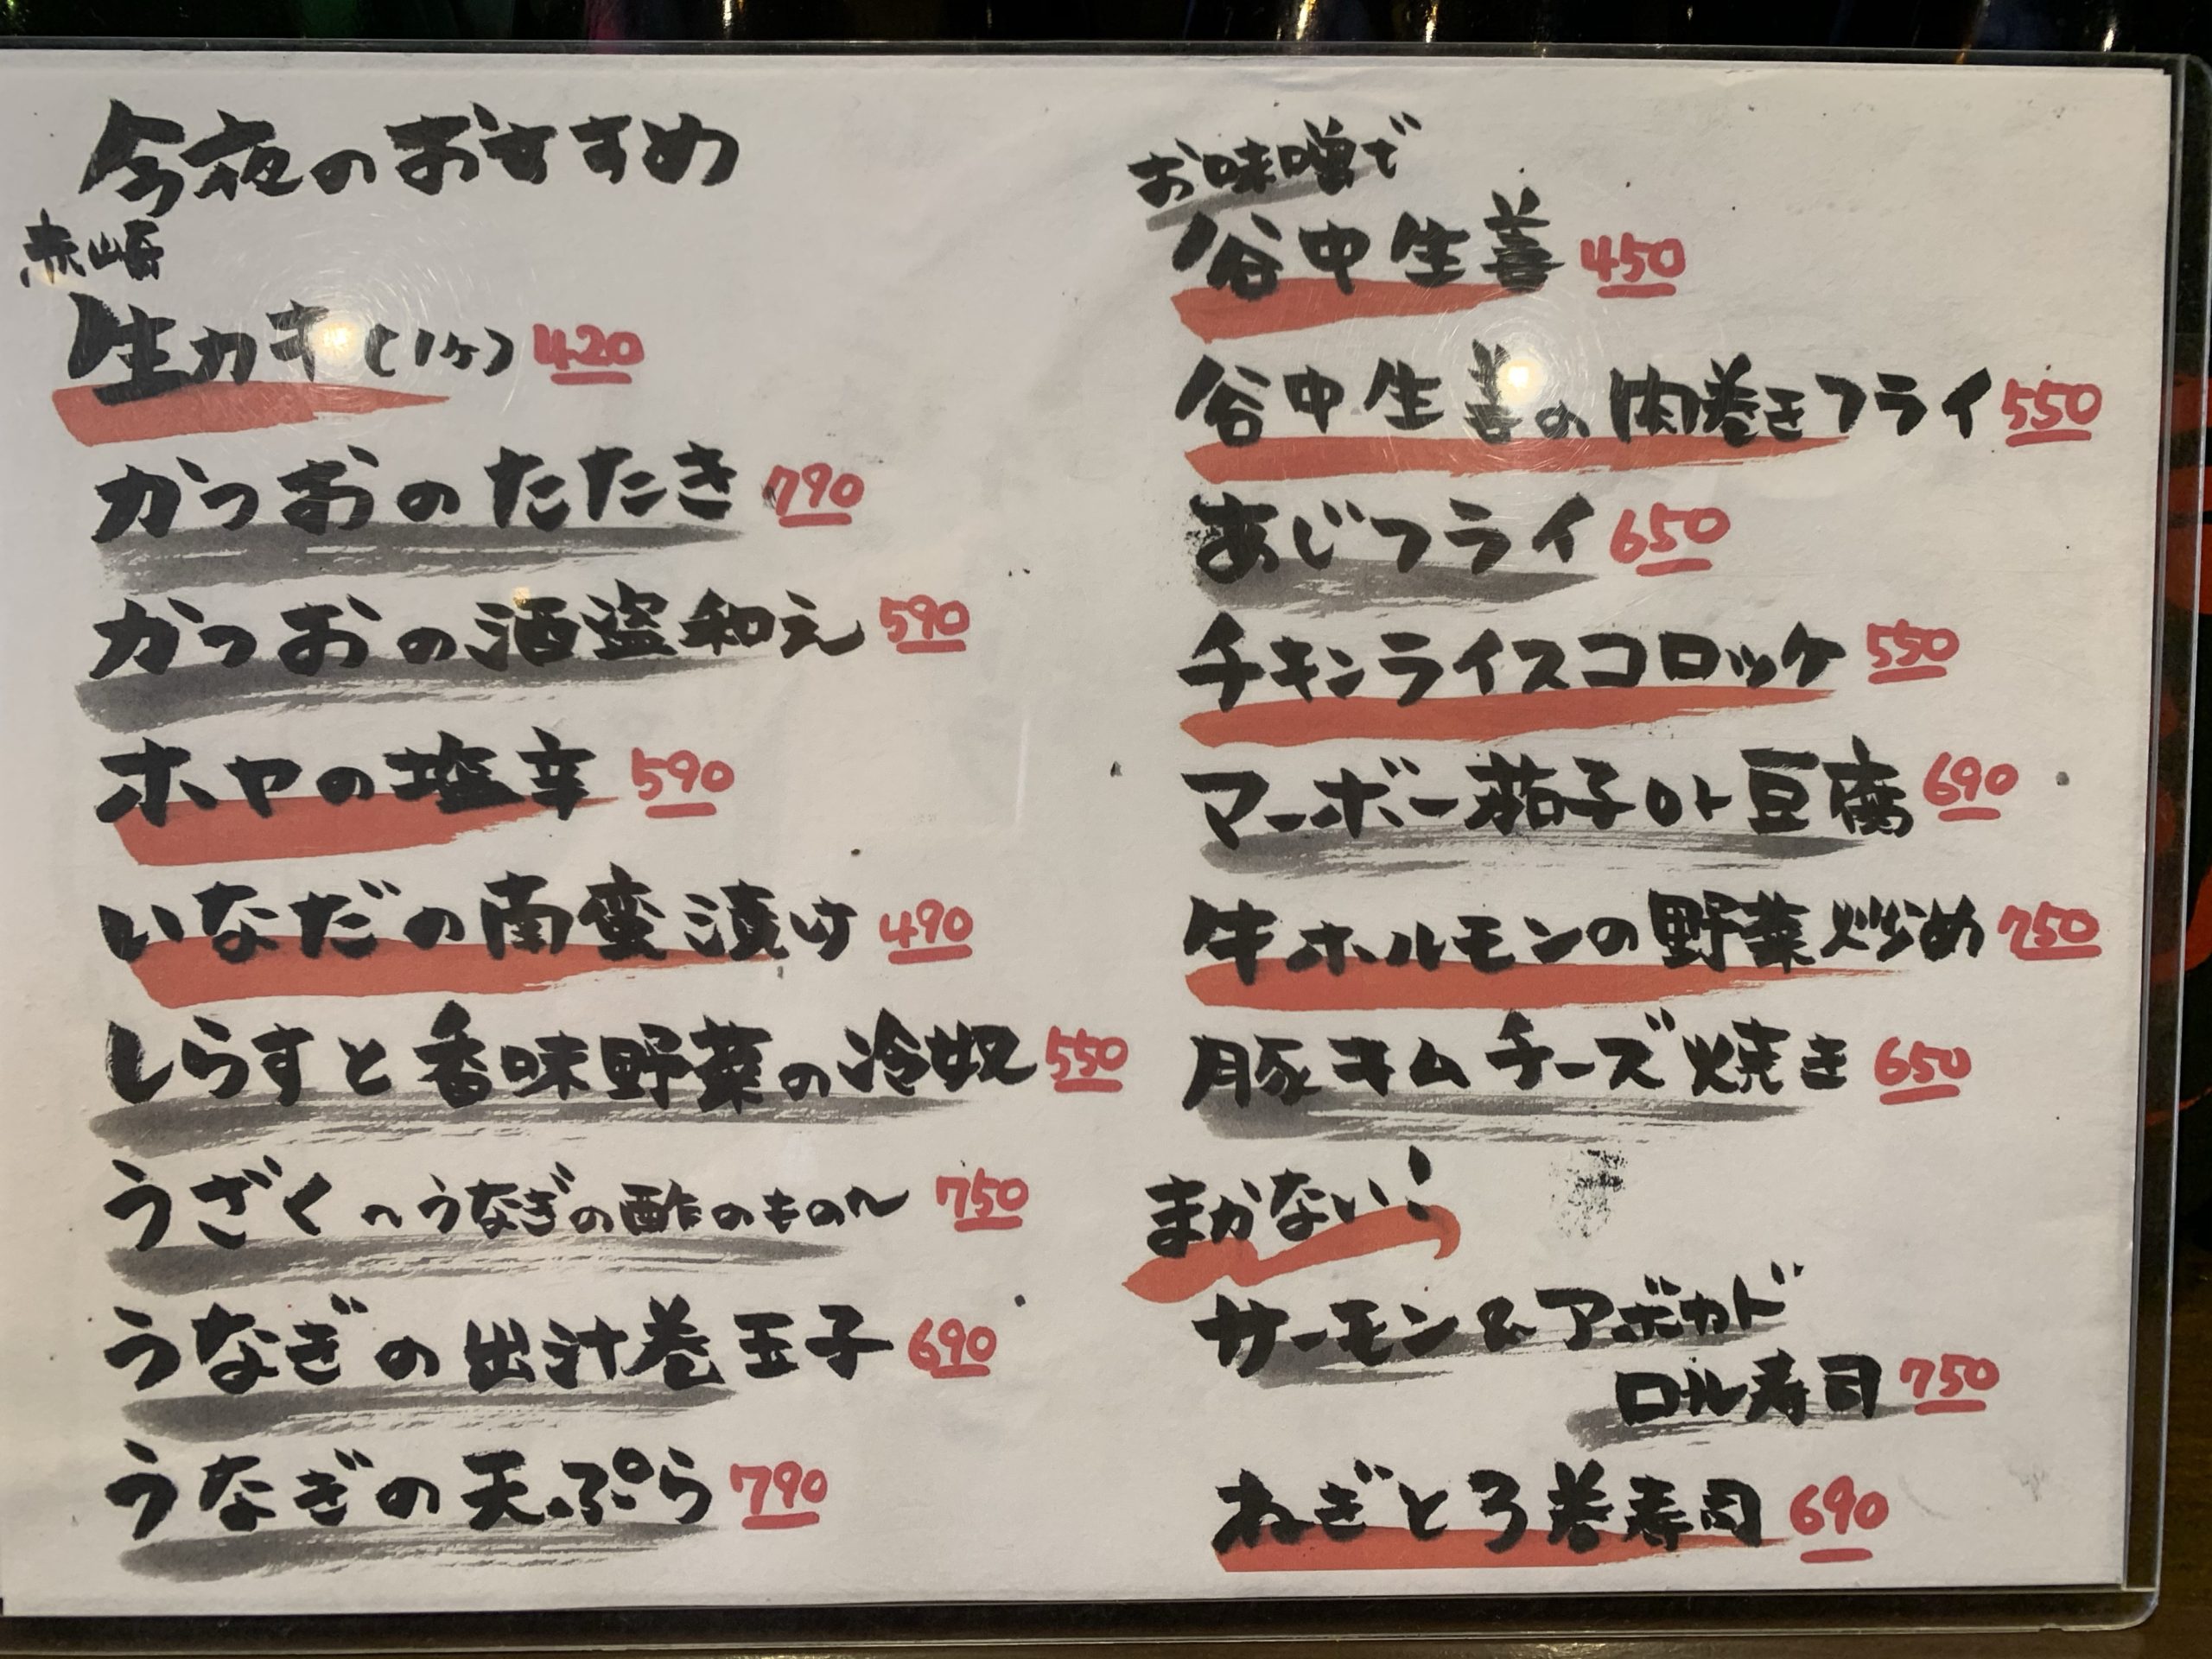 今夜のおすすめ
赤崎
生カキ(1ヶ) 420
かつおのたたき 790
かつおの酒盗和え 590
ホヤの塩辛 590
いなだの南蛮漬け 490
しらすと香味野菜の冷奴 550
うざく〜うなぎの酢のもの〜 750
うなぎの出汁巻玉子 690
うなぎの天ぷら 790
お味噌で
谷中生姜 450
谷中生姜の肉巻きフライ 550
あじフライ 650
チキンライスコロッケ 550
マーボー茄子or豆腐 690
牛ホルモンの野菜炒め 750
豚キムチーズ焼き 650
まかない!
サーモン&アボカド
ロール寿司 750
ねぎとろ巻寿司 690